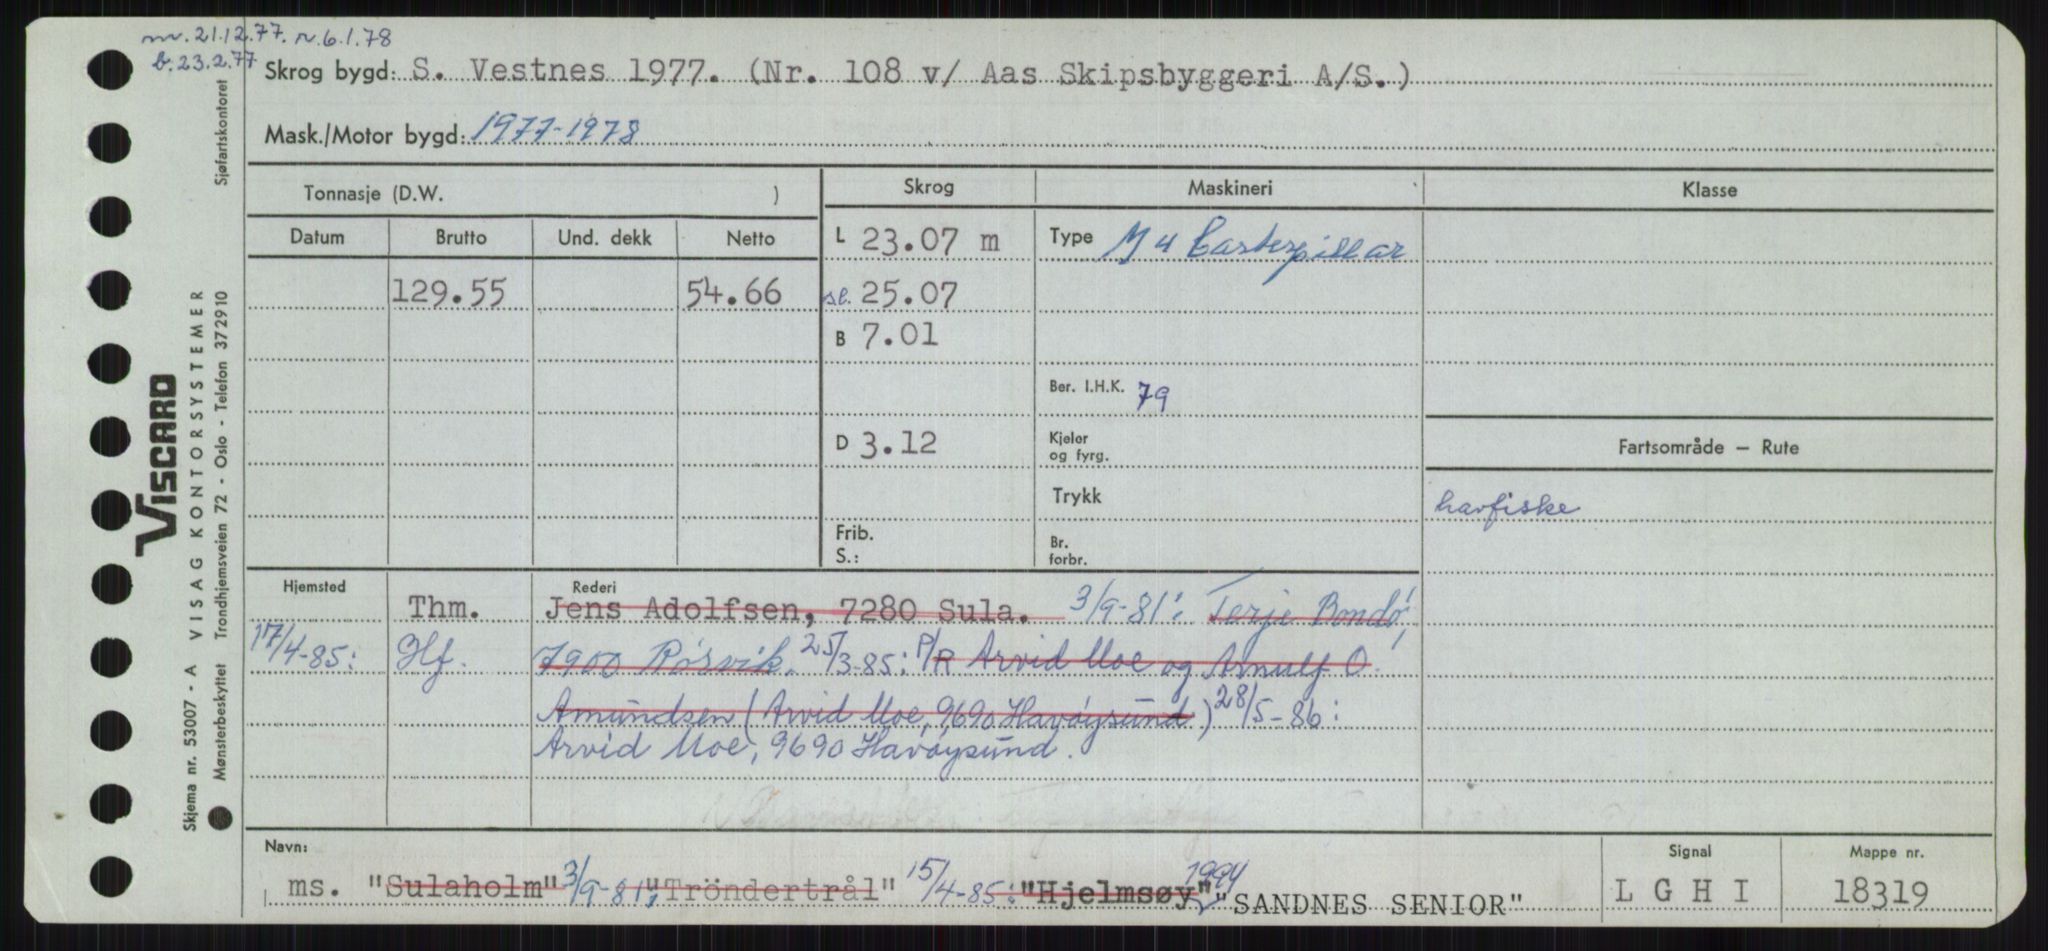 mr. 21.12.77. r. 6.1.78
b. 23.2.77
Skrog bygd: S. Vestnes 1977. (Nr. 108 v/ Aas Skipsbyggeri A/S.)
Mask./Motor bygd: 1977-1978
Tonnasje (D.W. )
Skrog
Maskineri
Klasse
Datum Brutto Und. dekk Netto
L 23.07 m
Type M 4 Casterpillar
129.55 54.66
s.l. 25.07
B 7.01
Ber. I.H.K. 79
D 3.12
Kjeler og fyrg.
Fartsområde – Rute
Trykk
havfiske
Frib.
S.:
Br. forbr.
Hjemsted
Rederi
Thm. Jens Adolfsen, 7280 Sula. 3/9-81: Terje Bondø,
17/4-85: Hf. 7900 Rørvik. 25/3-85: P/R Arvid Moe og Arnulf O.
Amundsen (Arvid Moe, 9690 Havøysund.) 28/5-86:
Arvid Moe, 9690 Havøysund.
Navn:
Signal
Mappe nr.
1994
ms. "Sulaholm" 3/9-81: "Tröndertrål" 15/4-85: "Hjelmsøy" "SANDNES SENIOR"
L G H I
18319
Skjema nr. 53007 - A VISAG KONTORSYSTEMER
Mønsterbeskyttet Trondhjemsveien 72 - Oslo - Telefon 372910
Sjøfartskontoret
VISCARD